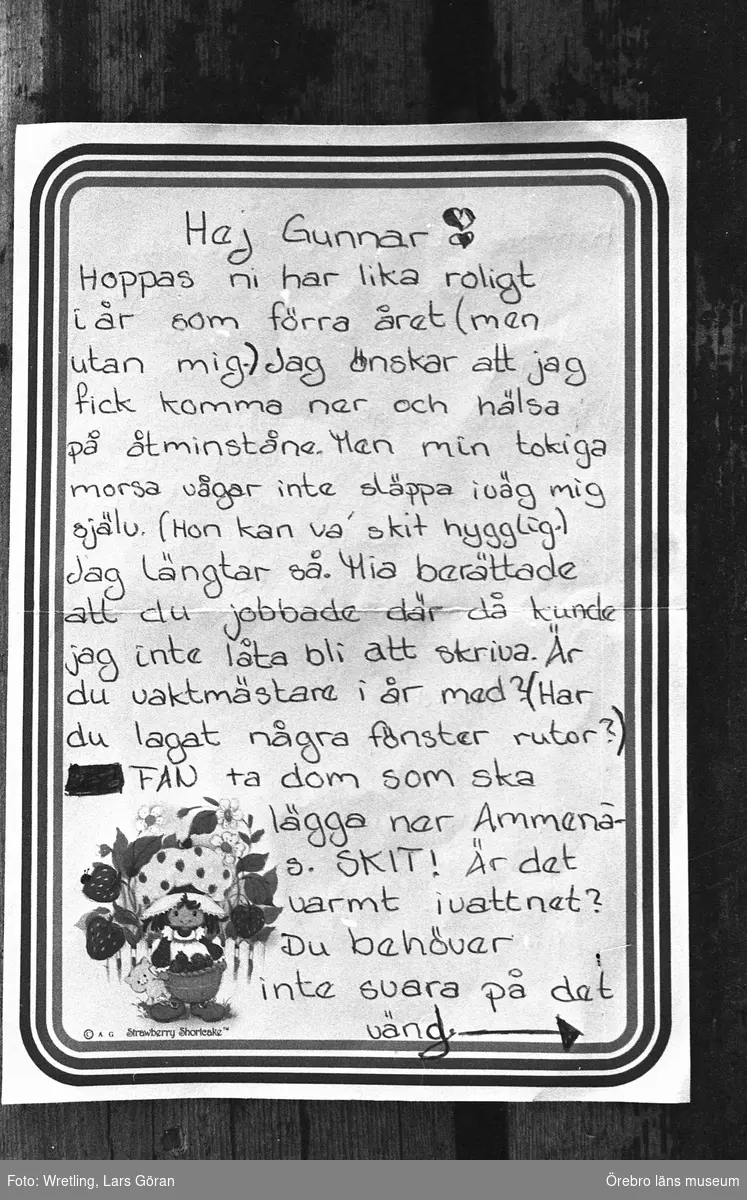 Hej Gunnar!
Hoppas ni har lika roligt
i år som förra året (men
utan mig.) Jag önskar att jag
fick komma ner och hälsa
på åtminståne. Men min tokiga
morsa vågar inte släppa iväg mig
själv. (Hon kan va' skit hygglig.)
Jag längtar så. Mia berättade
att du jobbade där då kunde
jag inte låta bli att skriva. Är
du vaktmästare i år med? (Har
du lagat några fönster rutor?)
FAN ta dom som ska
lägga ner Ammenä-
s. SKIT! Är det
varmt ivattnet?
Du behöver
inte svara på det
vänd.
© A G Strawberry Shortcake™
Foto: Wretling, Lars Göran
Örebro läns museum